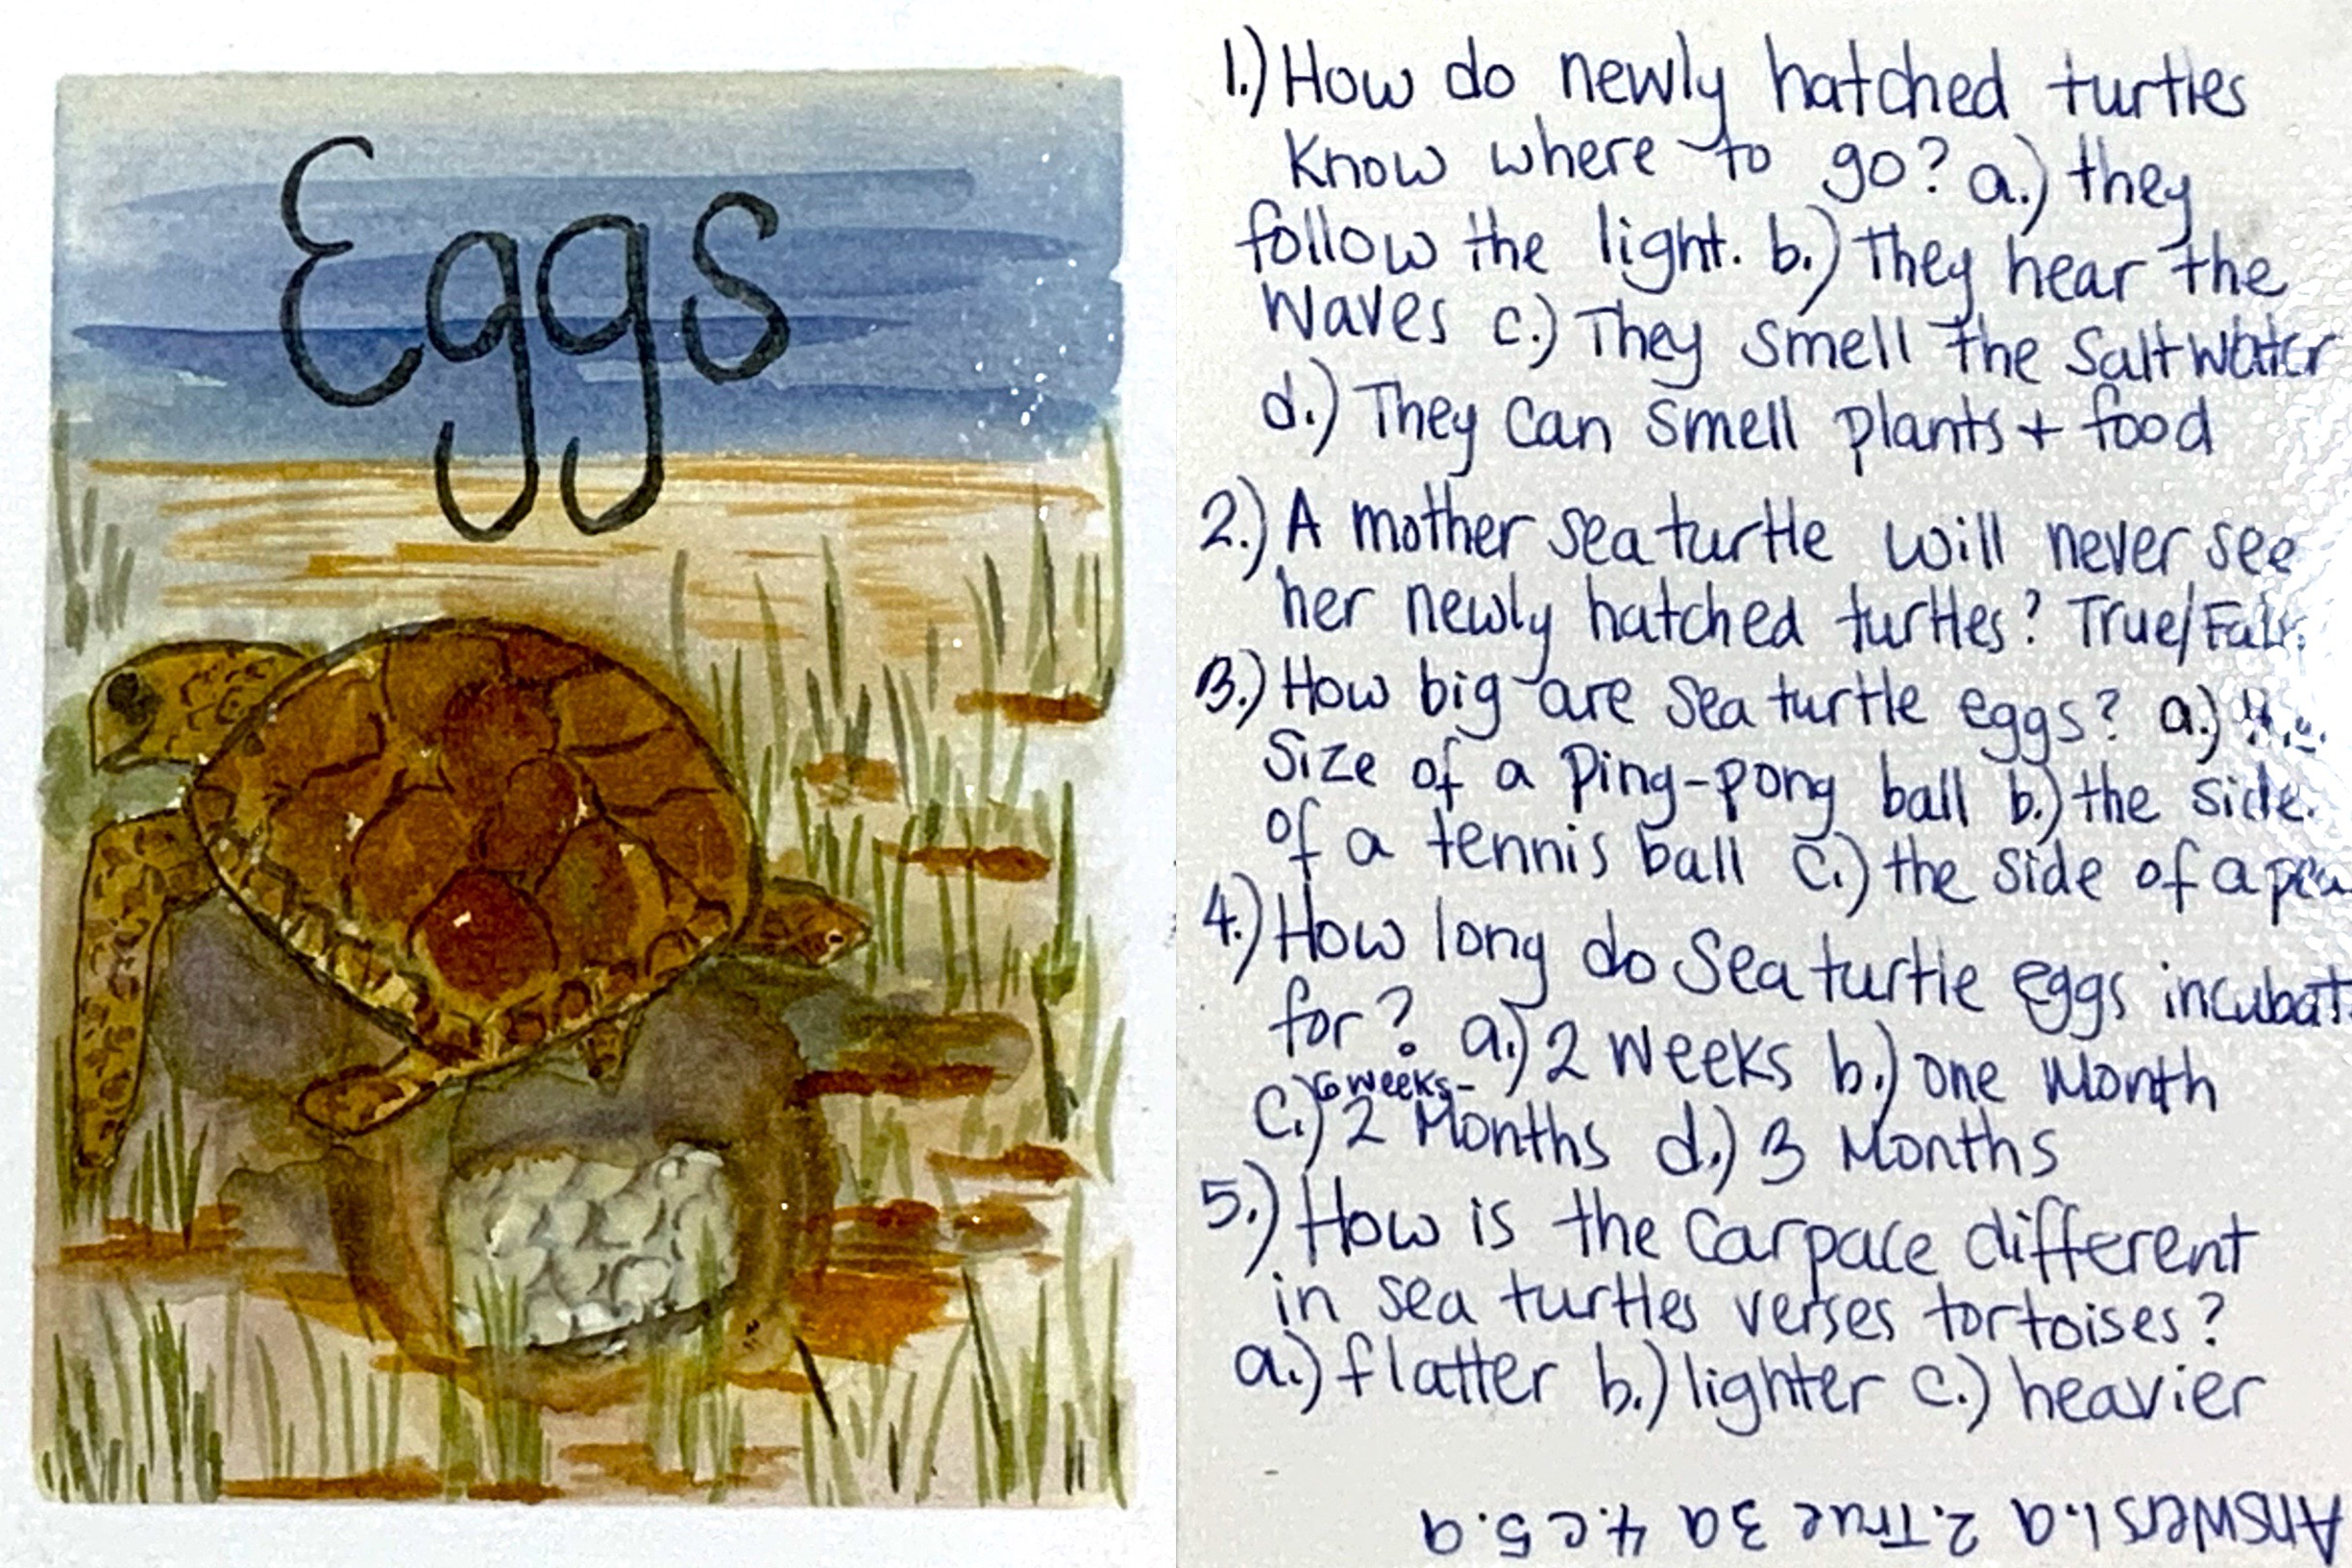 Eggs
1.) How do newly hatched turtles
Know where to go? a.) they
follow the light. b.) They hear the
Waves c.) They smell the Saltwater
d.) They Can smell plants + food
2.) A mother sea turtle will never see
her newly hatched turtles? True/
3.) How big are sea turtle eggs? a.)
Size of a Ping-pong ball b.) the side
of a tennis ball c.) the side of a
4.) How long do Sea turtle eggs incubat
for? a.) 2 weeks b.) one Month
6 weeks-
c.) 2 Months d.) 3 Months
5.) How is the Carpace different
in sea turtles verses tortoises?
a.) flatter b.) lighter c.) heavier
Answers 1.a 2.True 3a 4.c 5.a